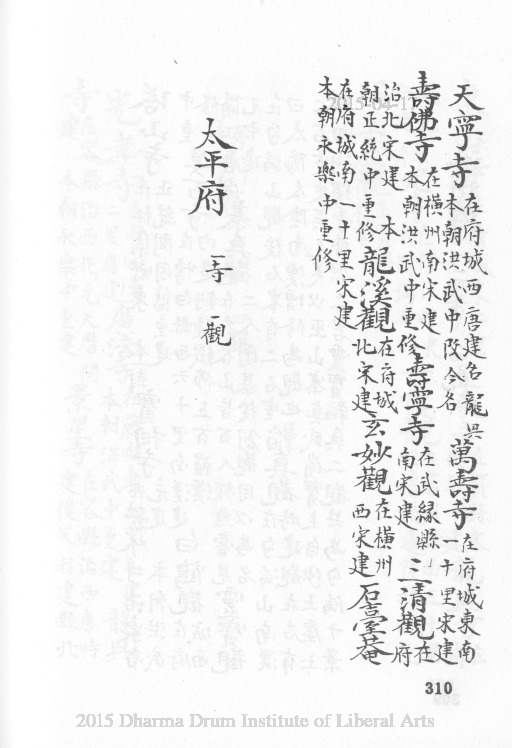 天寧寺在府城西唐建名龍興本朝洪武中改今名萬壽寺在府城東南一十里宋建
壽佛寺在橫州南宋建本朝洪武中重修壽寧寺在武緣縣南宋建三清觀在府
治北宋建 本朝正統中重修龍溪觀在府城北宋建玄妙觀在橫州西宋建石臺菴
在府城南一十里宋建本朝永樂中重修
太平府 一寺 一觀
310
2015-04-17
2015 Dharma Drum Institute of Liberal Arts